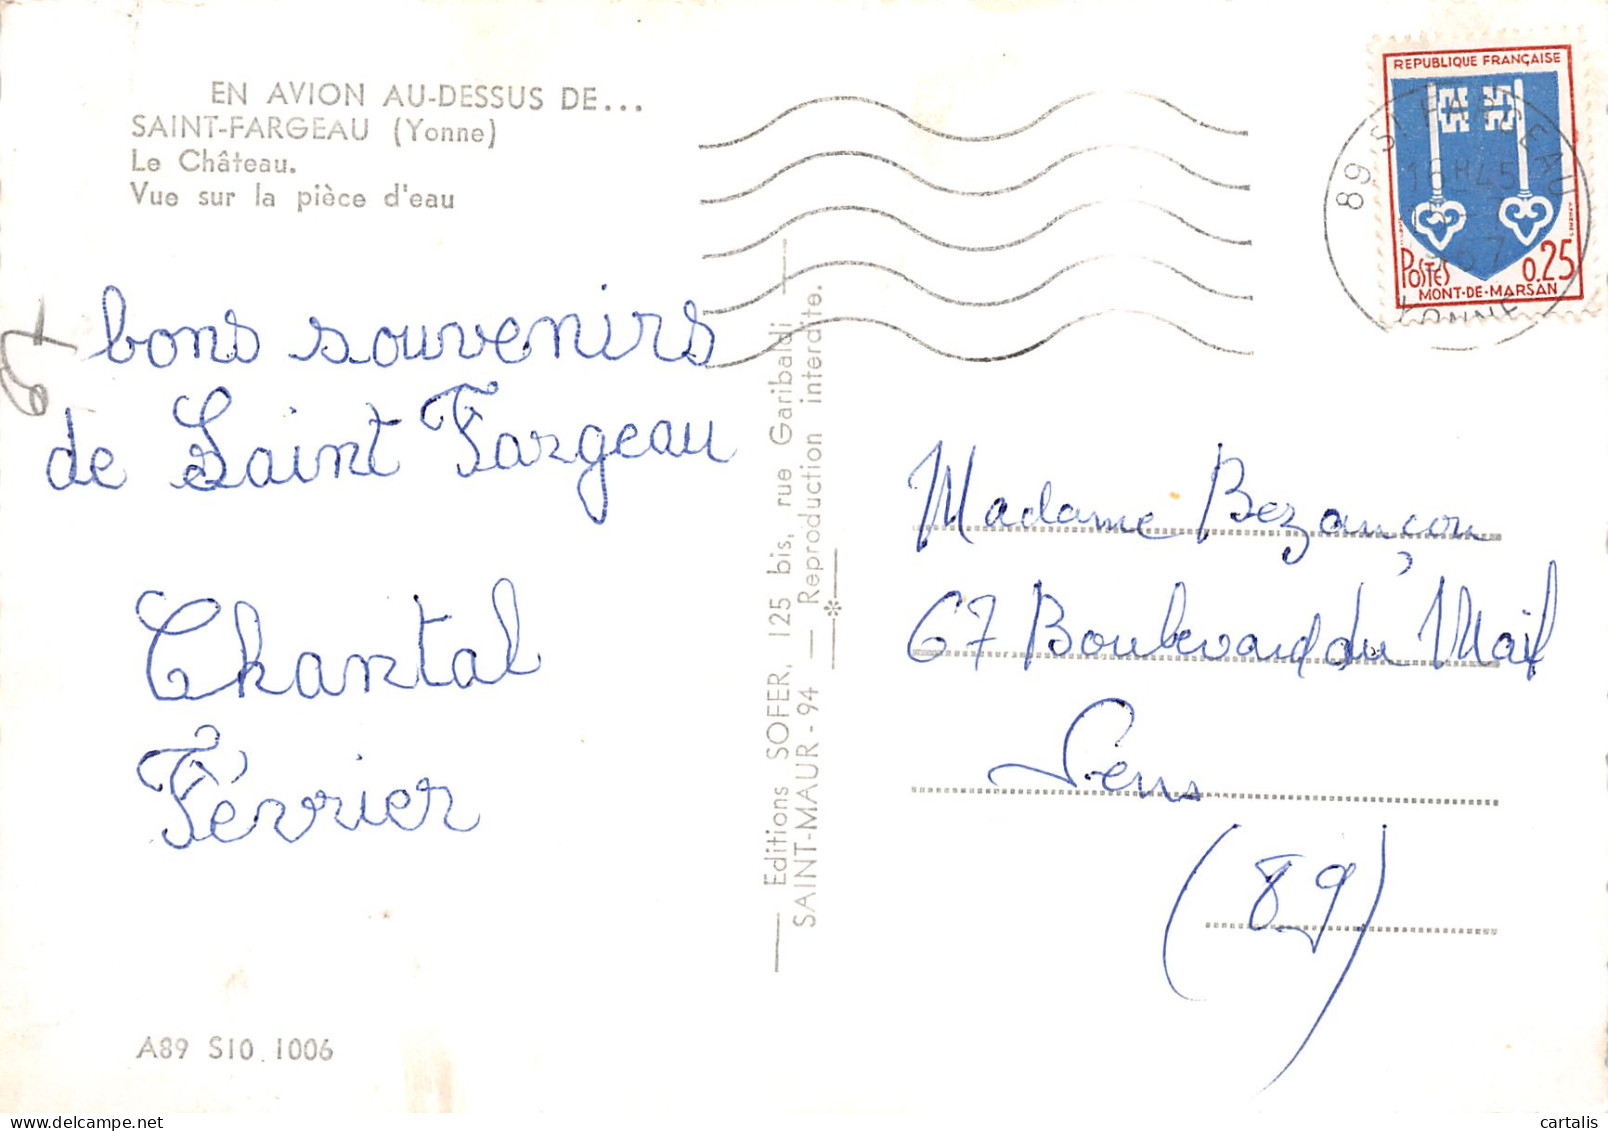 EN AVION AU-DESSUS DE...
SAINT-FARGEAU (Yonne)
Le Château.
Vue sur la pièce d'eau
bons souvenirs
de Saint Fargeau
Chantal
Février
A89 S10.1006
Editions SOFER, 125 bis, rue Garibaldi
SAINT-MAUR - 94 — Reproduction interdite.
REPUBLIQUE FRANÇAISE
POSTES 0,25
MONT-DE-MARSAN
89 ST FARGEAU
16H45
YONNE
Madame Bezançon
67 Boulevard du Mail
Sens
(89)
cartalis